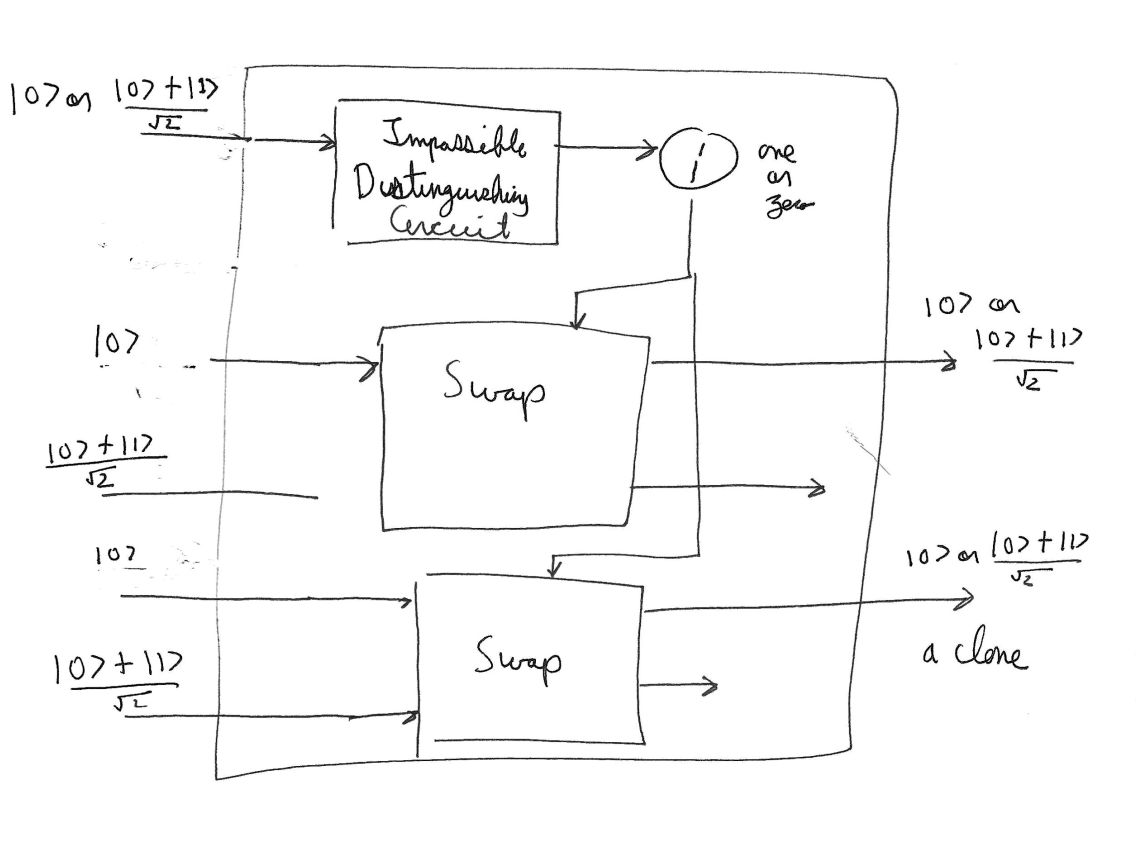 |0> or |0>+|1>
√2
Impossible
Distinguishing
Circuit
one
or
zero
|0>
Swap
|0> or
|0>+|1>
√2
|0>+|1>
√2
|0>
|0> or |0>+|1>
√2
Swap
a clone
|0>+|1>
√2